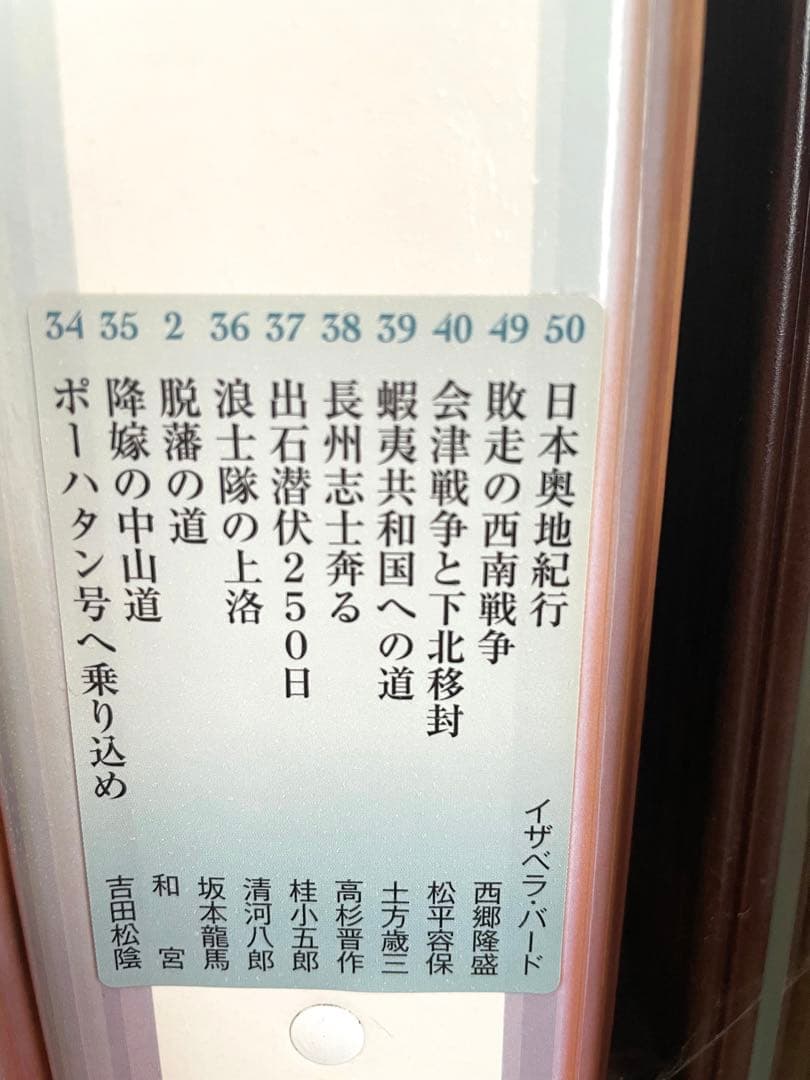 34 ポーハタン号へ乗り込め 吉田松陰
35 降嫁の中山道 和宮
2 脱藩の道 坂本龍馬
36 浪士隊の上洛 清河八郎
37 出石潜伏250日 桂小五郎
38 長州志士奔る 高杉晋作
39 蝦夷共和国への道 土方歳三
40 会津戦争と下北移封 松平容保
49 敗走の西南戦争 西郷隆盛
50 日本奥地紀行 イザベラ・バード